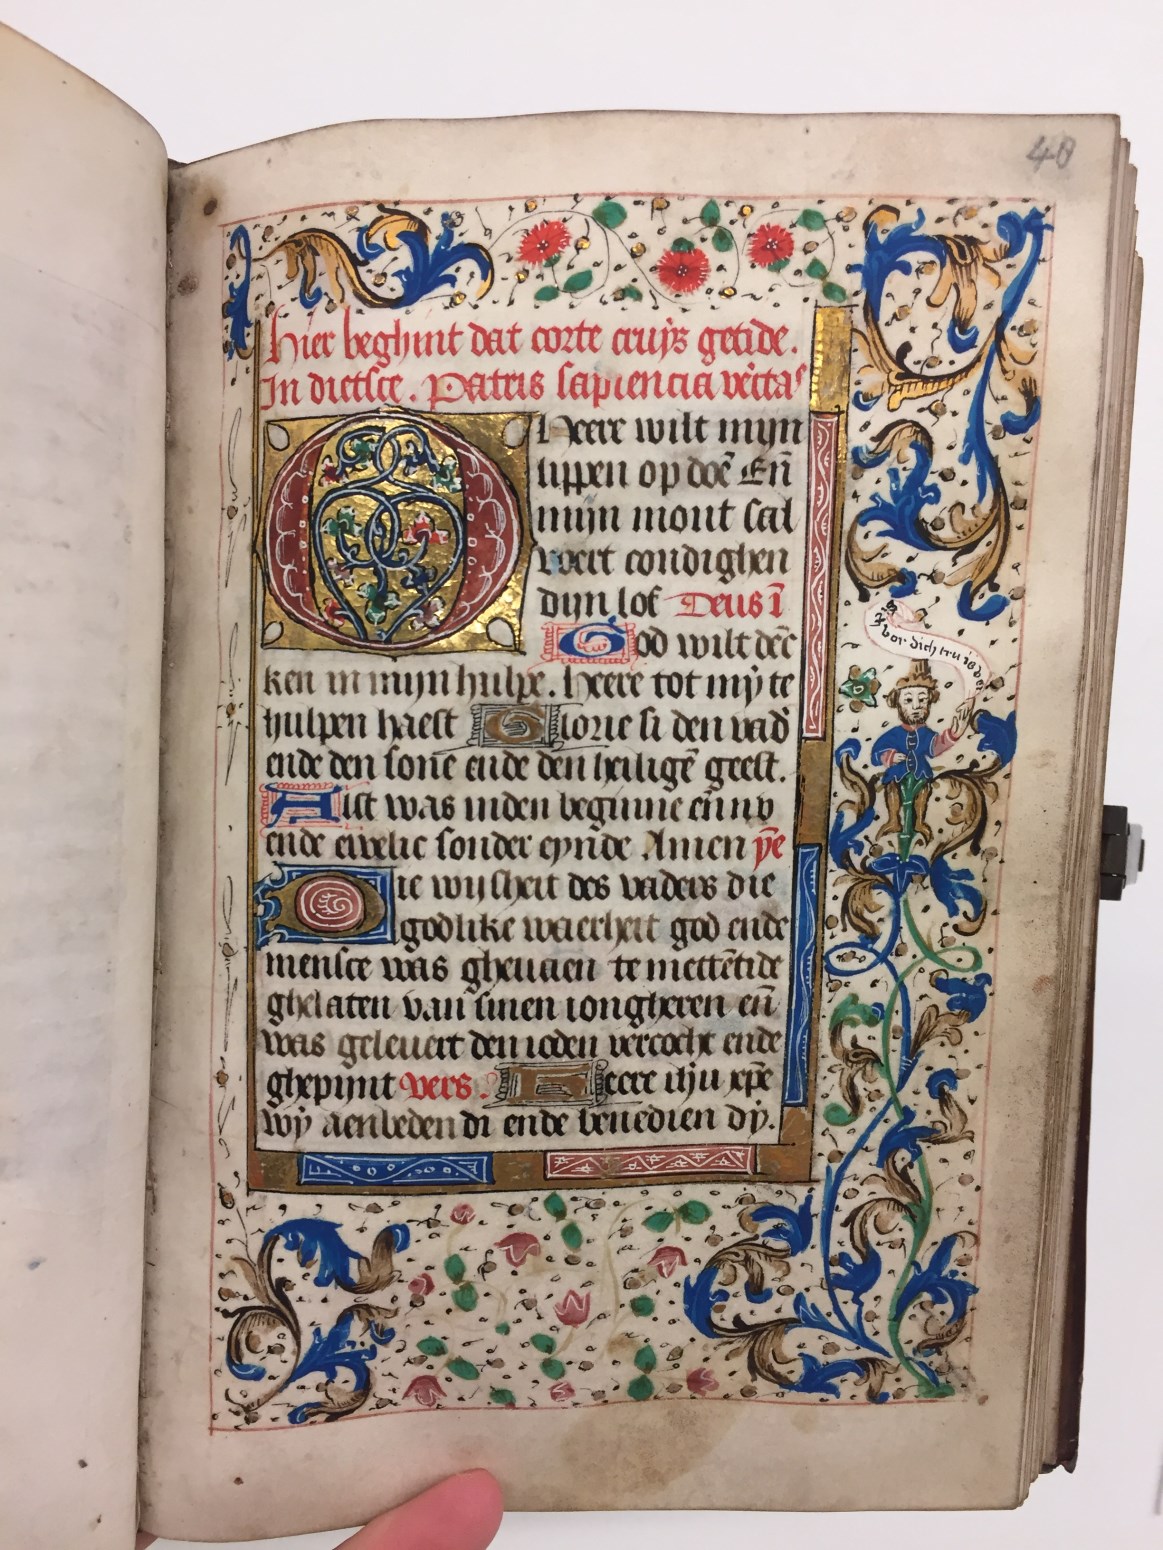 40
Hier beghint dat corte cruÿs getide.
In dietsce. Patris sapiencia v̄itas
O Heere wilt mijn
lippen op doē Eñ
mijn mont sal
voert condighen
dijn lof Deus ī
God wilt dēc
ken in mijn hulpe. Heere tot mÿ te
hulpen haest Glorie si den vad̄
ende den sone ende den heiligē geest.
Alst was inden beginne eñ nv
ende ewelic sonder eynde Amen ȳe
Die wijsheit des vaders die
godlike waerheit god ende
mensce was gheuaen te mettētide
ghelaten van sinen iongheren eñ
was geleuert den ioden vercocht ende
ghepijnt vers. Heere ihū xp̄e
wÿ aenbeden di ende benedien dÿ.
vor dich